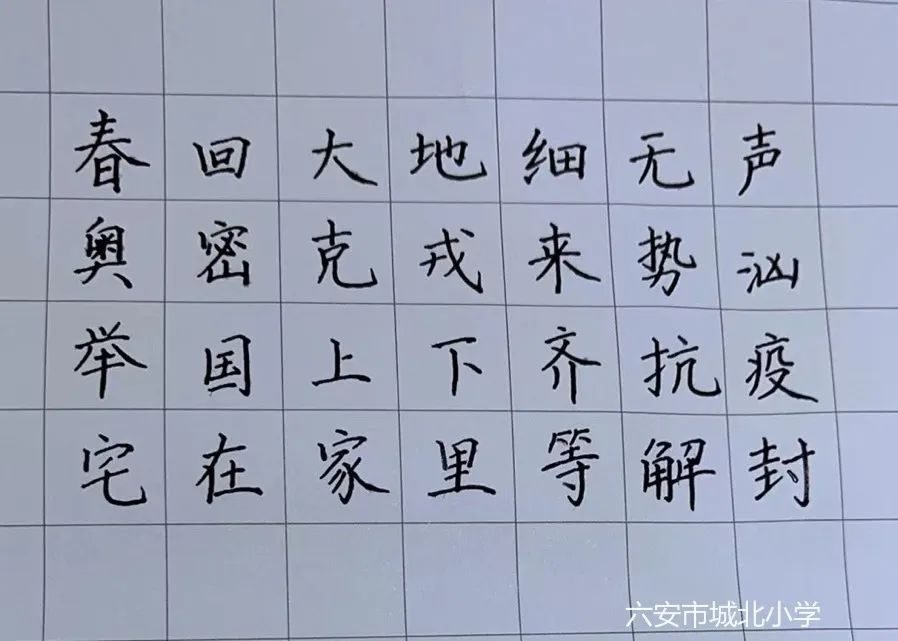 春回大地细无声
奥密克戎来势汹
举国上下齐抗疫
宅在家里等解封
六安市城北小学